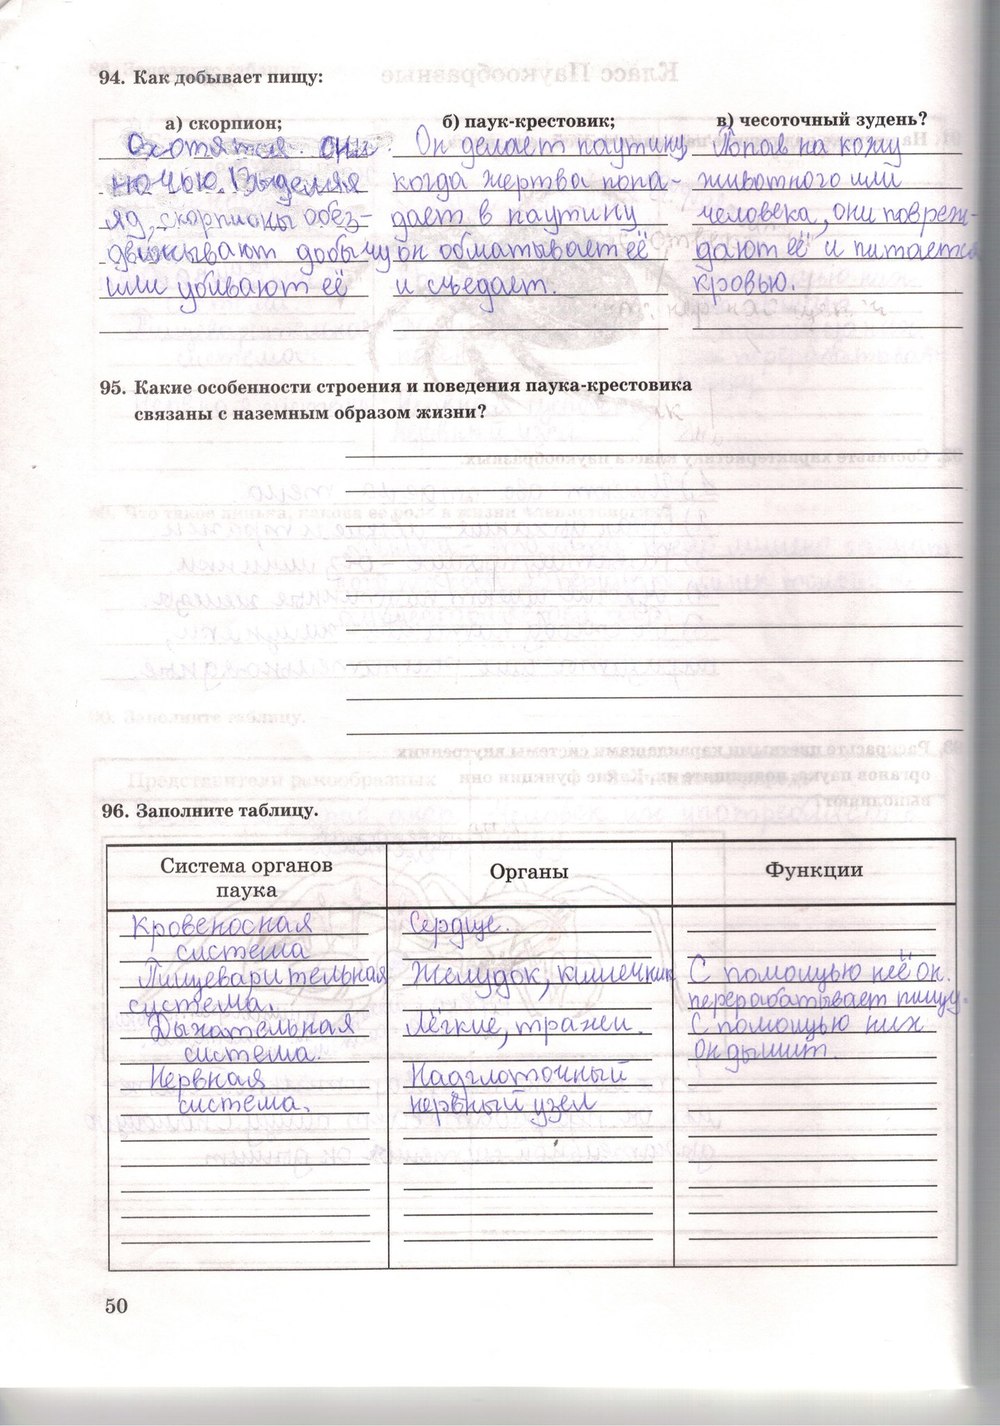 94. Как добывает пищу:
а) скорпион;
Охотятся они
ночью. Выделяя
яд, скорпионы обез-
движывают добычу
или убивают её
б) паук-крестовик;
Он делает паутину
когда жертва попа-
дает в паутину
он обматывает её
и съедает.
в) чесоточный зудень?
Попав на кожу
животного или
человека, они повреж-
дают её и питается
кровью.
95. Какие особенности строения и поведения паука-крестовика
связаны с наземным образом жизни?
96. Заполните таблицу.
Система органов
паука
Органы
Функции
Кровеносная
система
Сердце.
Пищеварительная
система.
Желудок, кишечник
С помощью неё он
перерабатывает пищу.
Дыхательная
система.
Лёгкие, трахеи.
С помощью них
он дышит.
Нервная
система.
Надглоточный
нервный узел
50